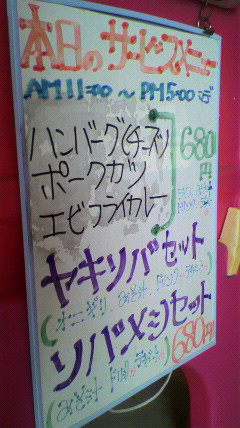 本日のサービスメニュー
AM11:00 ~ PM5:00 まで
ハンバーグ(チーズ)
ポークカツ
エビフライカレー
680円
ヤキソバセット
(オニギリ、みそ汁、ドリンク
ソバメシセット
(みそ汁 ドリンク
680円